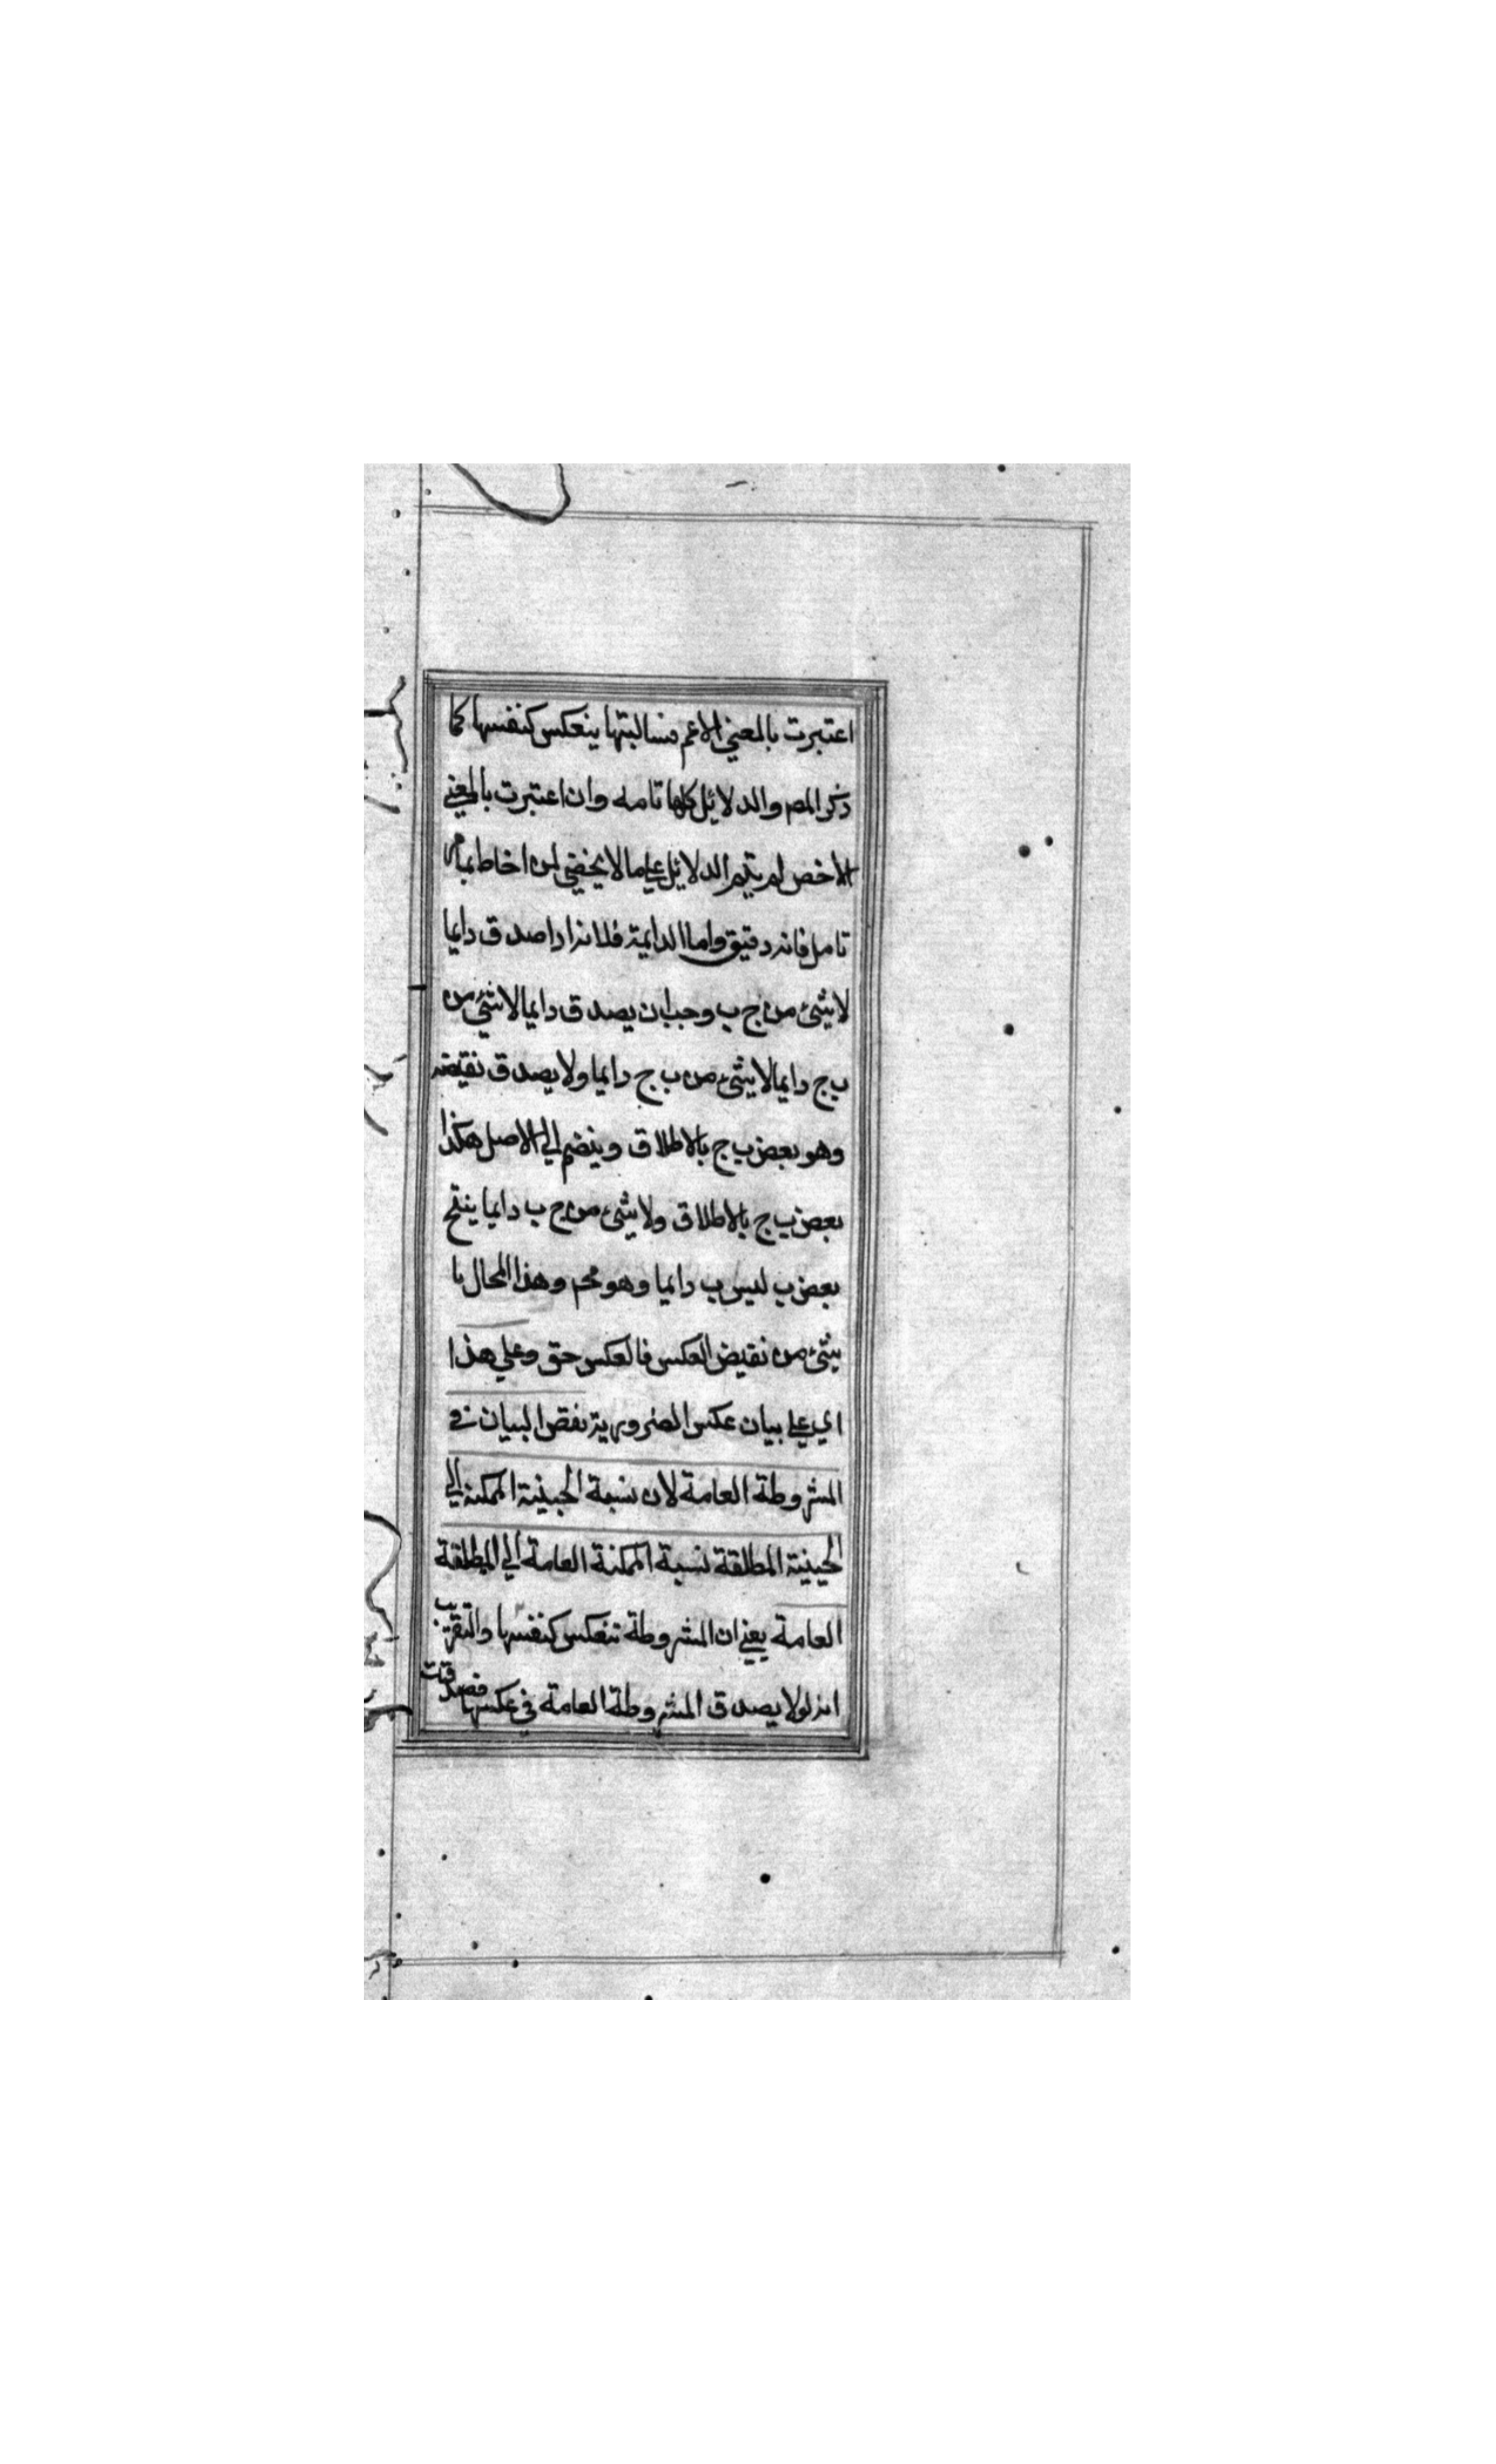 اعتبرت بالمعني الاعم فسالبتها ينعكس كنفسها كما
ذكر المص والدلائل كلها تامه وان اعتبرت بالمعني
الاخص لم يتم الدلائل علي ما لا يخفي لمن احاط بما مر
تامل فانه دقيق واما الدايمة فلانه اذا صدق دايما
لا شئ من ج ب وجب ان يصدق دايما لا شئ من
ب ج دايما لا شئ من ب ج دايما ولا يصدق نقيضه
وهو بعض ب ج بالاطلاق وينضم الي الاصل هكذا
بعض ب ج بالاطلاق ولا شئ من ج ب دايما ينتج
بعض ب ليس ب دايما وهو مح وهذا المحال نا
شئ من نقيض العكس فالعكس حق وعلي هذا
اي علي بيان عكس الضرورية نقض البيان في
المشروطة العامة لان نسبة الحينية الممكنة الي
الحينية المطلقة نسبة الممكنة العامة الي المطلقة
العامة يعني ان المشروطة تنعكس كنفسها والتقريب
انه لو لا يصدق المشروطة العامة في عكسها فصدقت